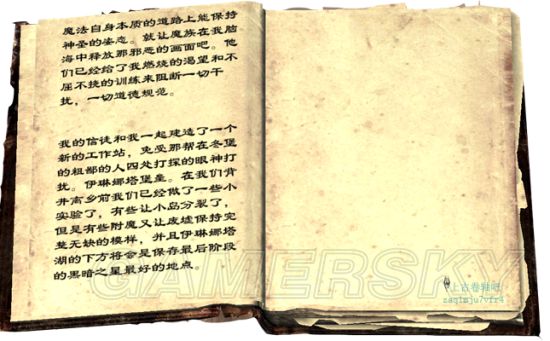 魔法自身本质的道路上能保持
神圣的姿态。就让魔族在我脑
海中释放那邪恶的画面吧。他
们已经给了我燃烧的渴望和不
屈不挠的训练来阻断一切干
扰，一切道德规范。
我的信徒和我一起建造了一个
新的工作站，免受那帮在冬堡
的粗鄙的人四处打探的眼神打
扰。伊琳娜塔堡垒。在我们背
井离乡前我们已经做了一些小
实验了，有些让小岛分裂了，
但是有些附魔又让废墟保持完
整无缺的模样，并且伊琳娜塔
湖的下方将会是保存最后阶段
的黑暗之星最好的地点。
GAMERSKY
上古卷轴吧
zaqimju7vfr4